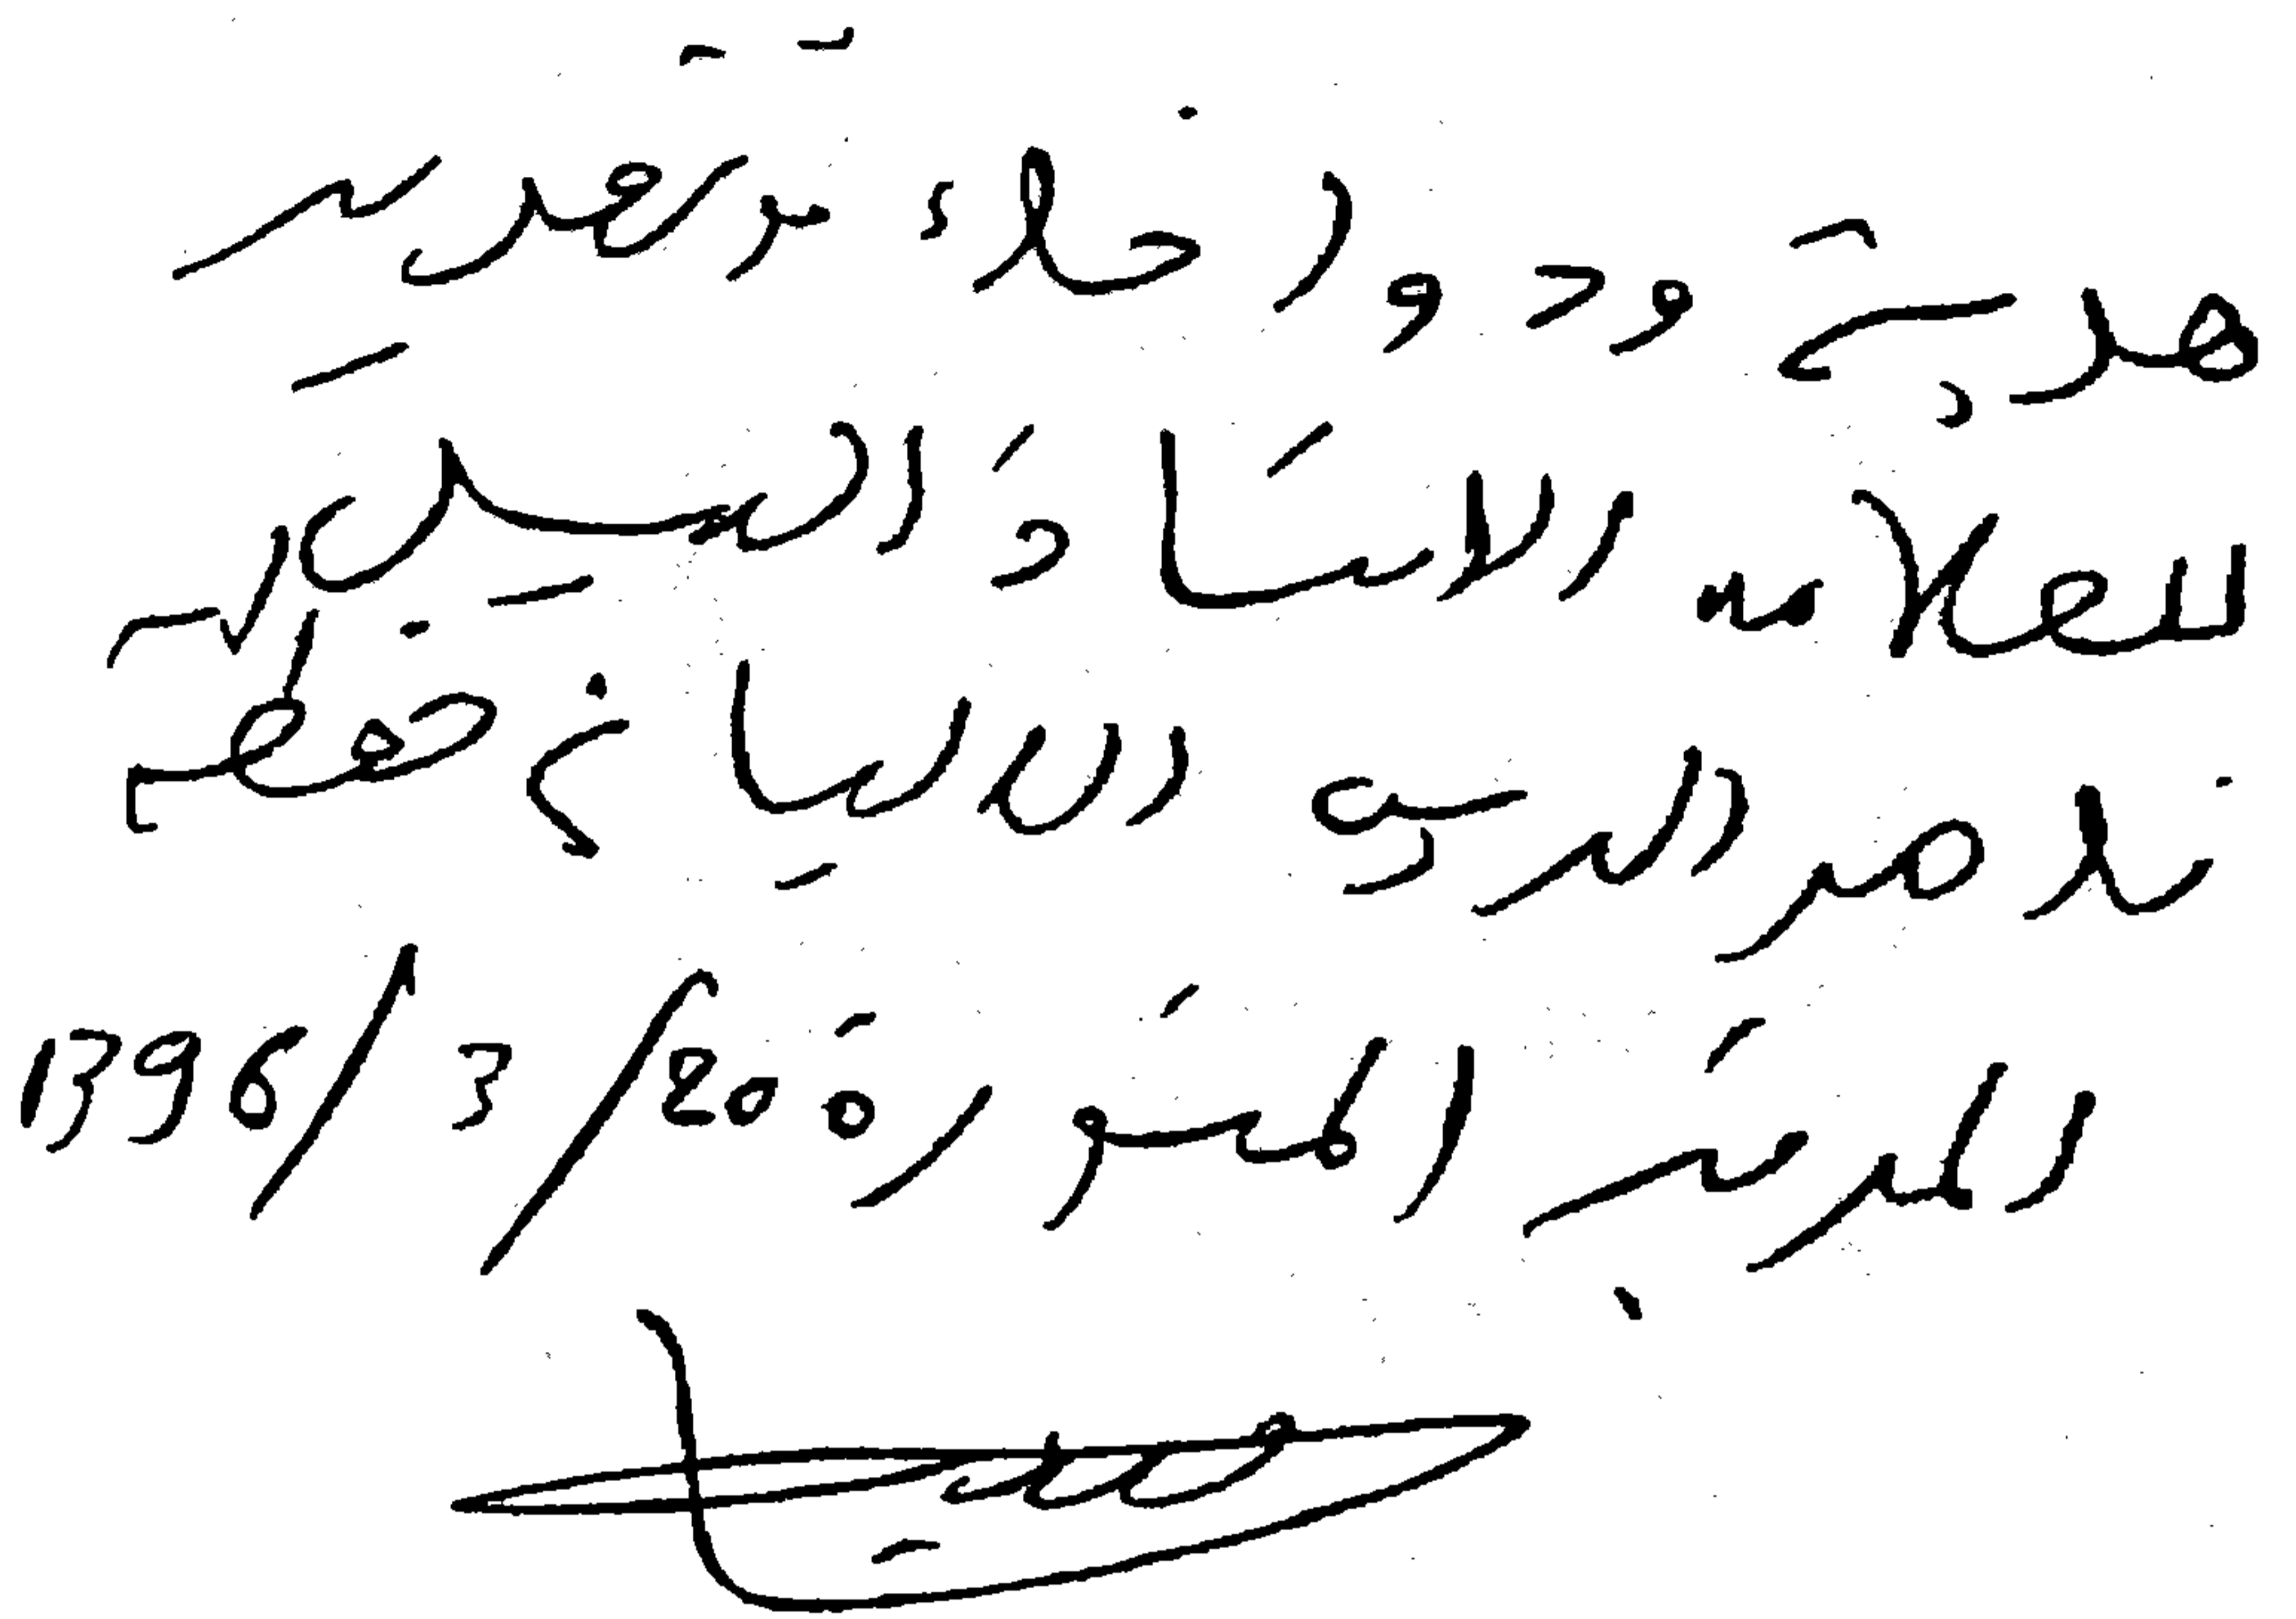 هدية ود وإخاء وتقدير
للعلامه الاستاذ السيد
ناصر الدين الالباني حفظه الله
المدينة المنورة 20/3/1396